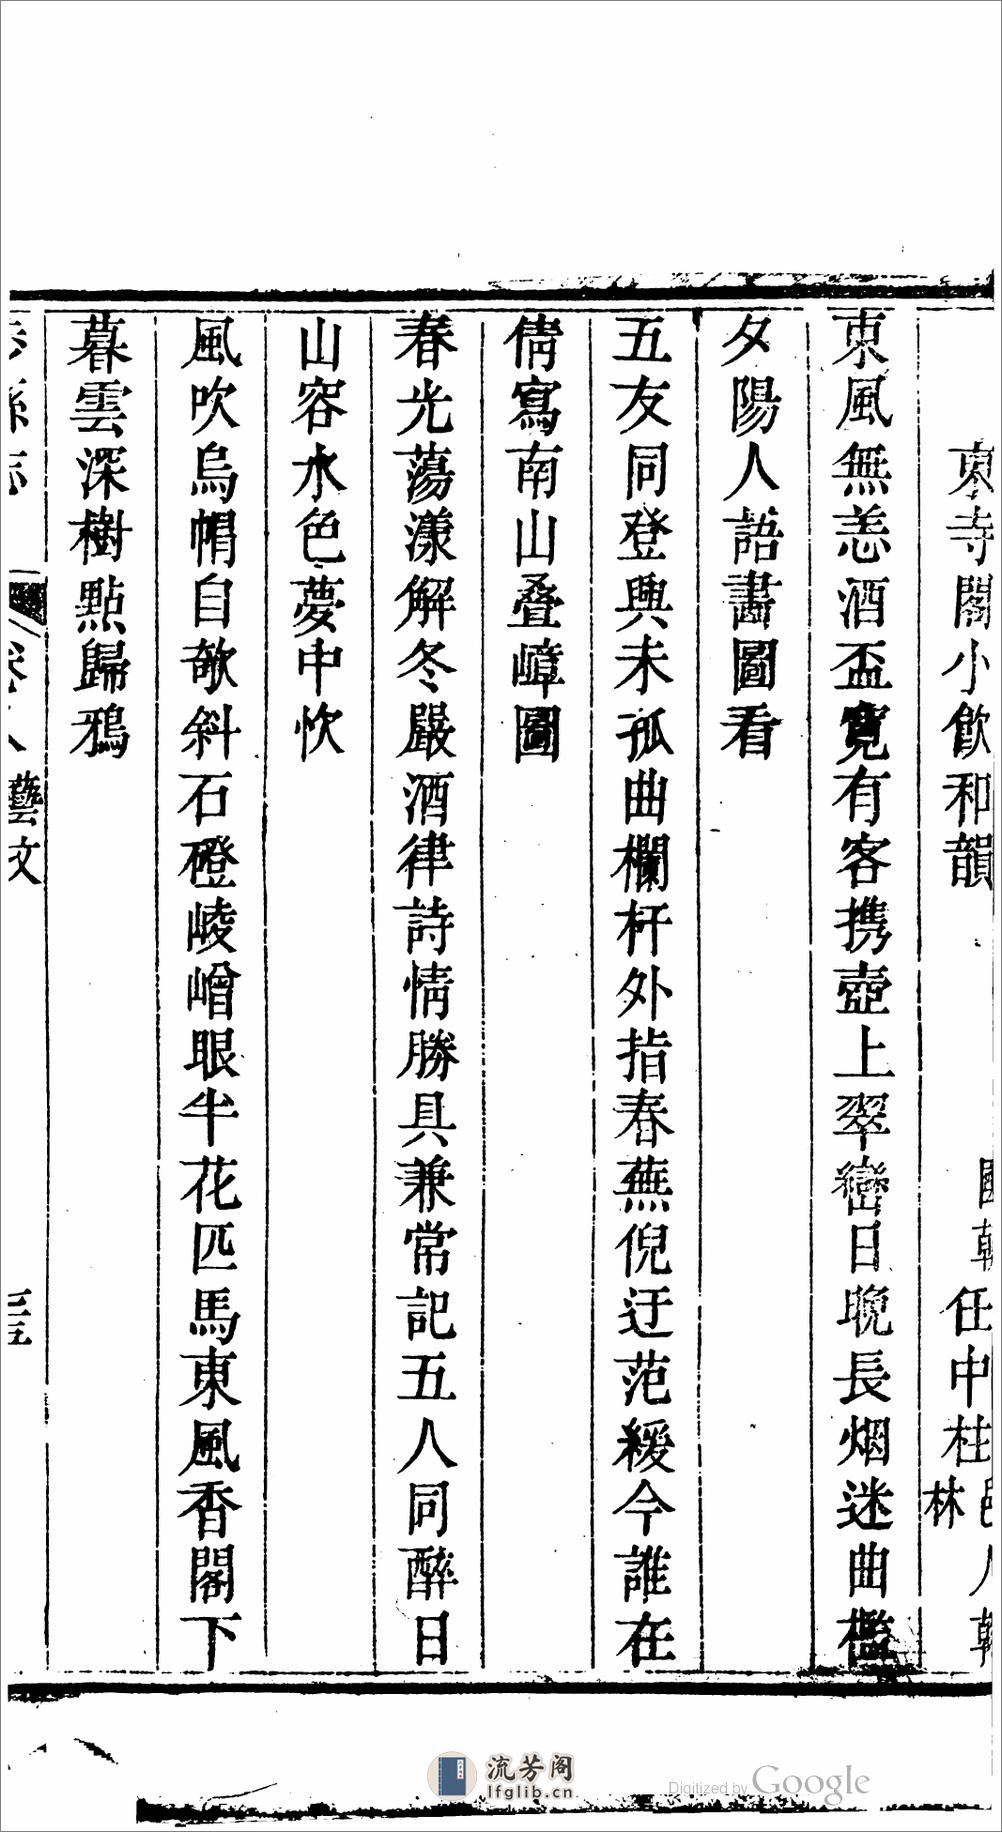 東寺閣小飲和韻 國朝任中桂邑人翰林
東風無恙酒盃寛有客携壺上翠巒日晚長烟迷曲檻
夕陽人語畵圖看
五友同登興未孤曲欄杆外指春蕪倪迂范緩今誰在
倩寫南山叠嶂圖
春光蕩漾解冬嚴酒律詩情勝具兼常記五人同醉日
山容水色夢中忺
風吹烏帽自欹斜石磴崚嶒眼半花匹馬東風香閣下
暮雲深樹點歸鴉
縣志 卷 藝文
流芳阁
lfglib.cn
Digitized by Google